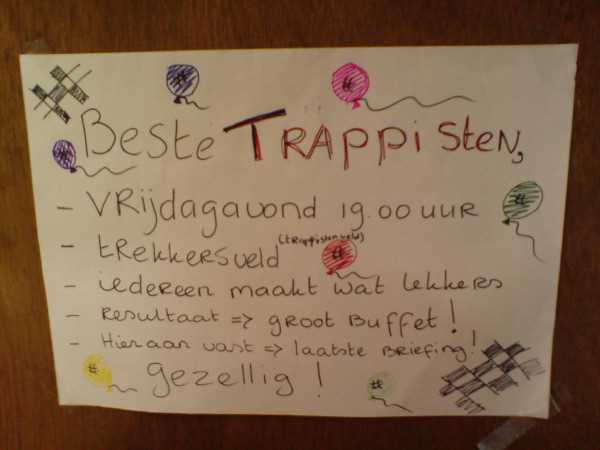 Beste Trappisten,
- Vrijdagavond 19.00 uur
- trekkersveld (trappistenveld)
- iedereen maakt wat lekkers
- resultaat => groot buffet!
- Hieraan vast => laatste briefing!
gezellig!